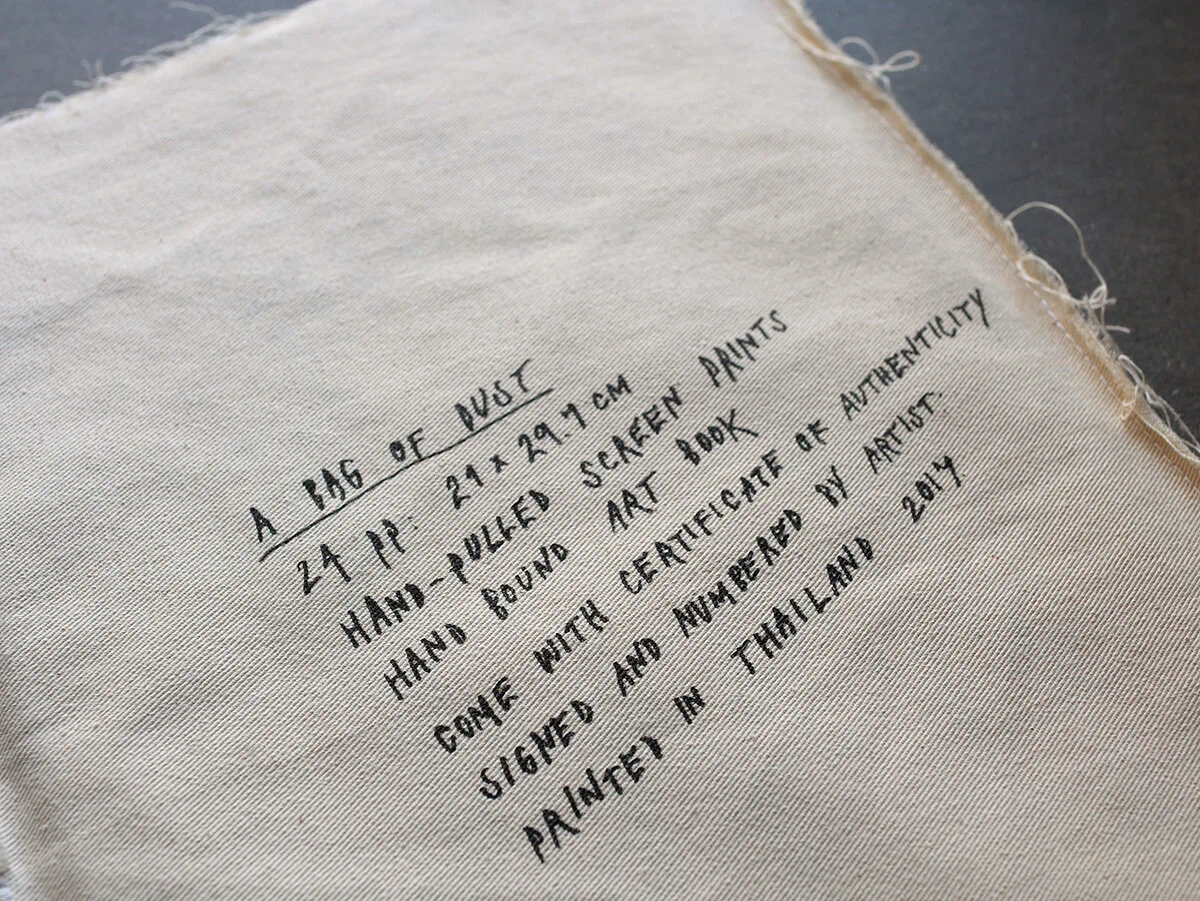 A BAG OF DUST
24 PP: 21 x 29.7 CM
HAND-PULLED SCREEN PRINTS
HAND BOUND ART BOOK
COME WITH CERTIFICATE OF AUTHENTICITY
SIGNED AND NUMBERED BY ARTIST.
PRINTED IN THAILAND 2014